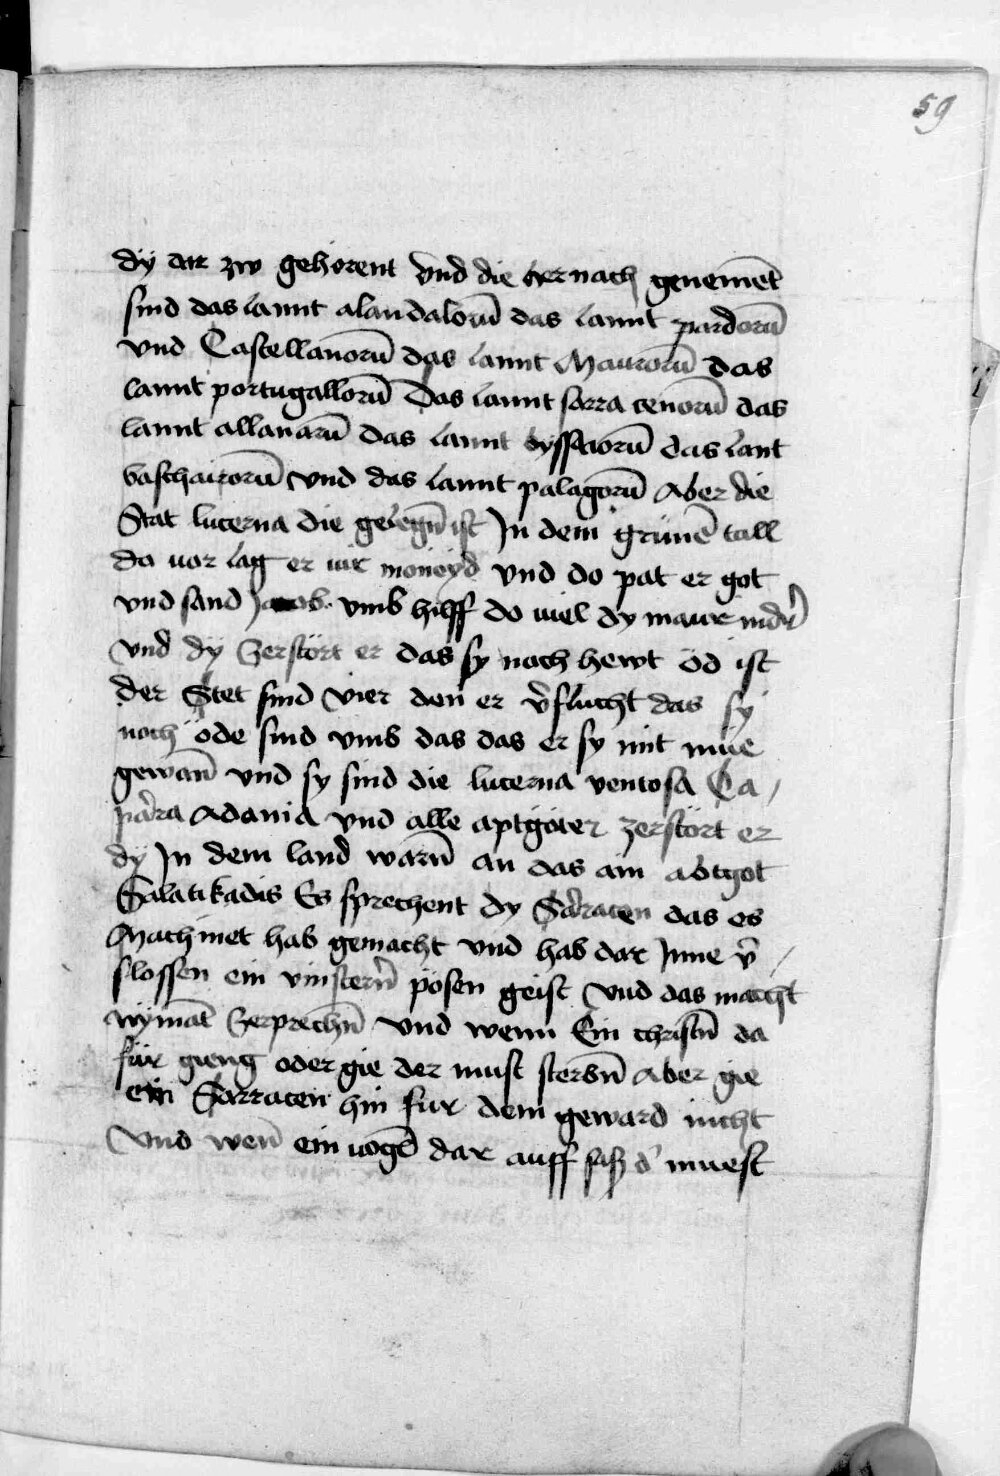 59
dÿ dar zw gehörent vnd die hernach genēnet
sind das lannt alandalorū das lannt pardorū
vnd Castellanorū das lannt Maurorū das
lannt portugallorū Das lannt sarra cenorū das
lannt allanarū das lannt byssctorū das lant
baschairorū vnd das lannt palagorū Aber die
Stat lucerna die gelegn̄ ist Jn dem grünē tall
da vor lag er vir moneyd vnd do pat er got
vnd sand Jacob vmb hilff do viel dy maur nidʼ
vnd dÿ Zerstört er das sy noch hewt öd ist
der Stet sind vier den er v̄flucht das sy
noch öde sind vmb das das er sy mit müe
gewan̄ vnd sy sind die lucerna ventosa Ca /
para Adania vnd alle aptgöter zerstört er
dÿ Jn dem land warn̄ an das ain abtgot
Salatikadis Es sprechent dy Sarracen das es
Machmet hab gemacht vnd hab dar Jnne v̄ /
slossen ein vinstern̄ pösen geist Vnd das macht
nÿmāt Zerprechn̄ vnd wenn Ein christn̄ da
für gieng oder gie der must sterbn̄ Aber gie
ein Sarracen hin fur dem geward nicht
Vnd wen̄ ein vogel dar auff sasz dʼ muest